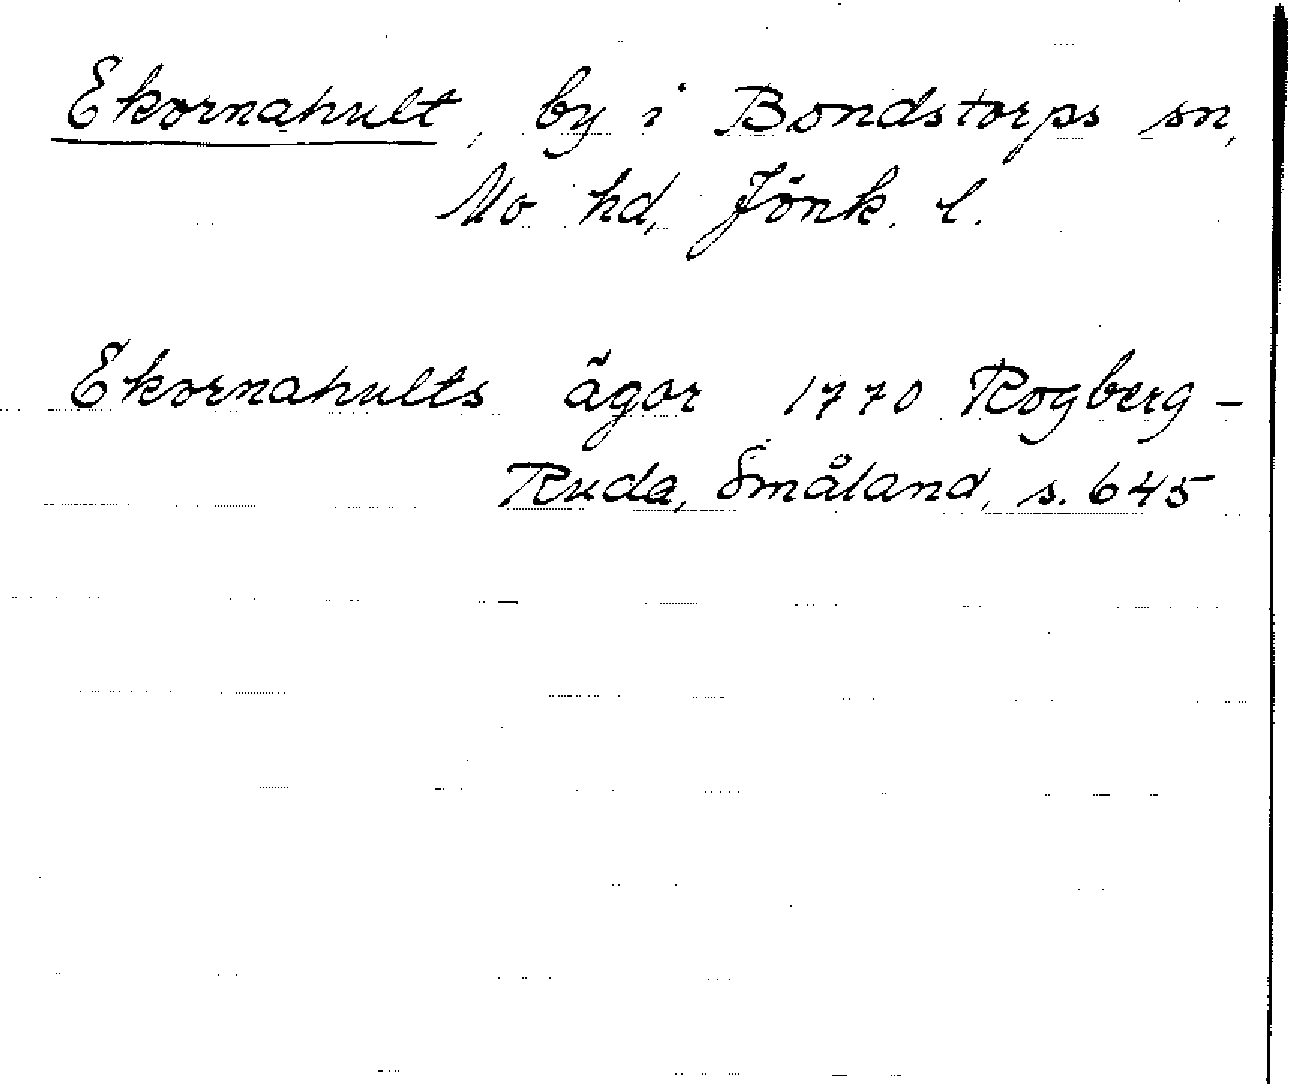 Ekornahult, by i Bondstorps sn,
Mo hd, Jönk. l.
Ekornahults ägor 1770 Rogberg-
Ruda, Småland, s. 645